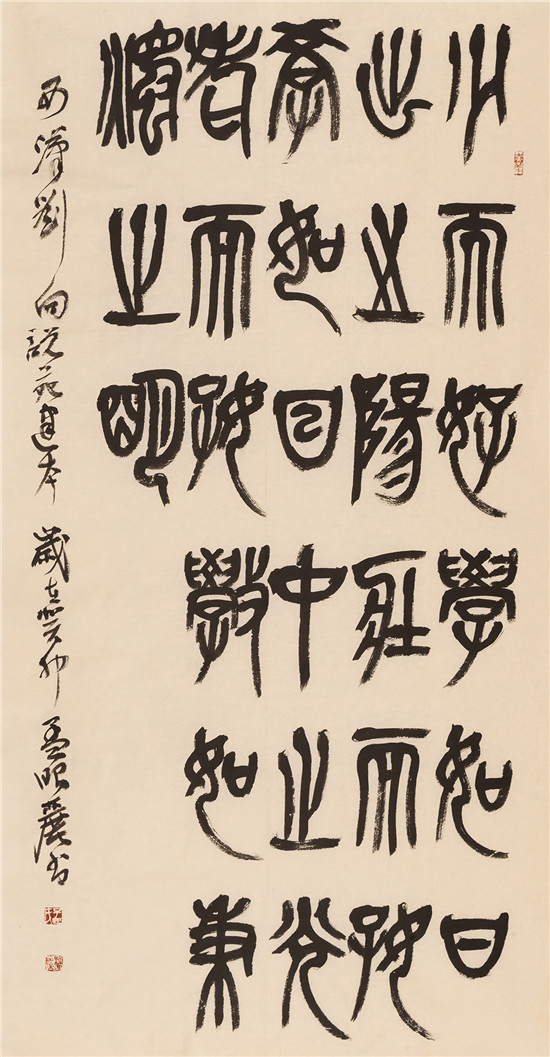 少而好學如日
出之陽壯而好
學如日中之光
老而好斆如秉
燭之明
西漢劉向說苑建本 歲在癸卯 孟昭麗書